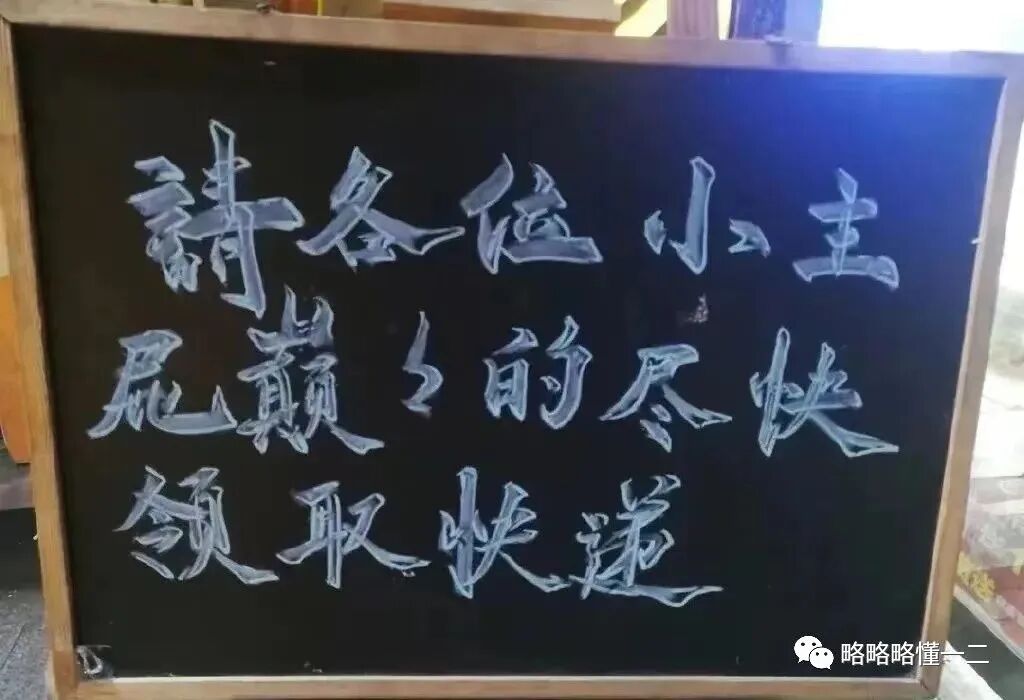 請各位小主
屁巅々的尽快
领取快递
略略略懂一二